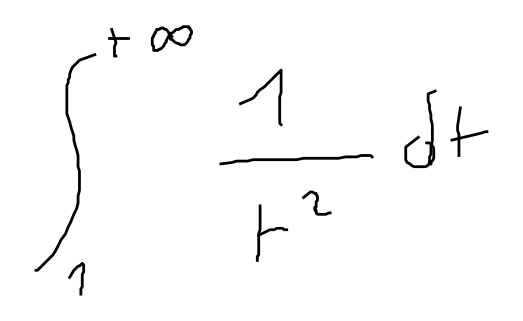 ∫₁^{+∞} \frac{1}{t²} dt